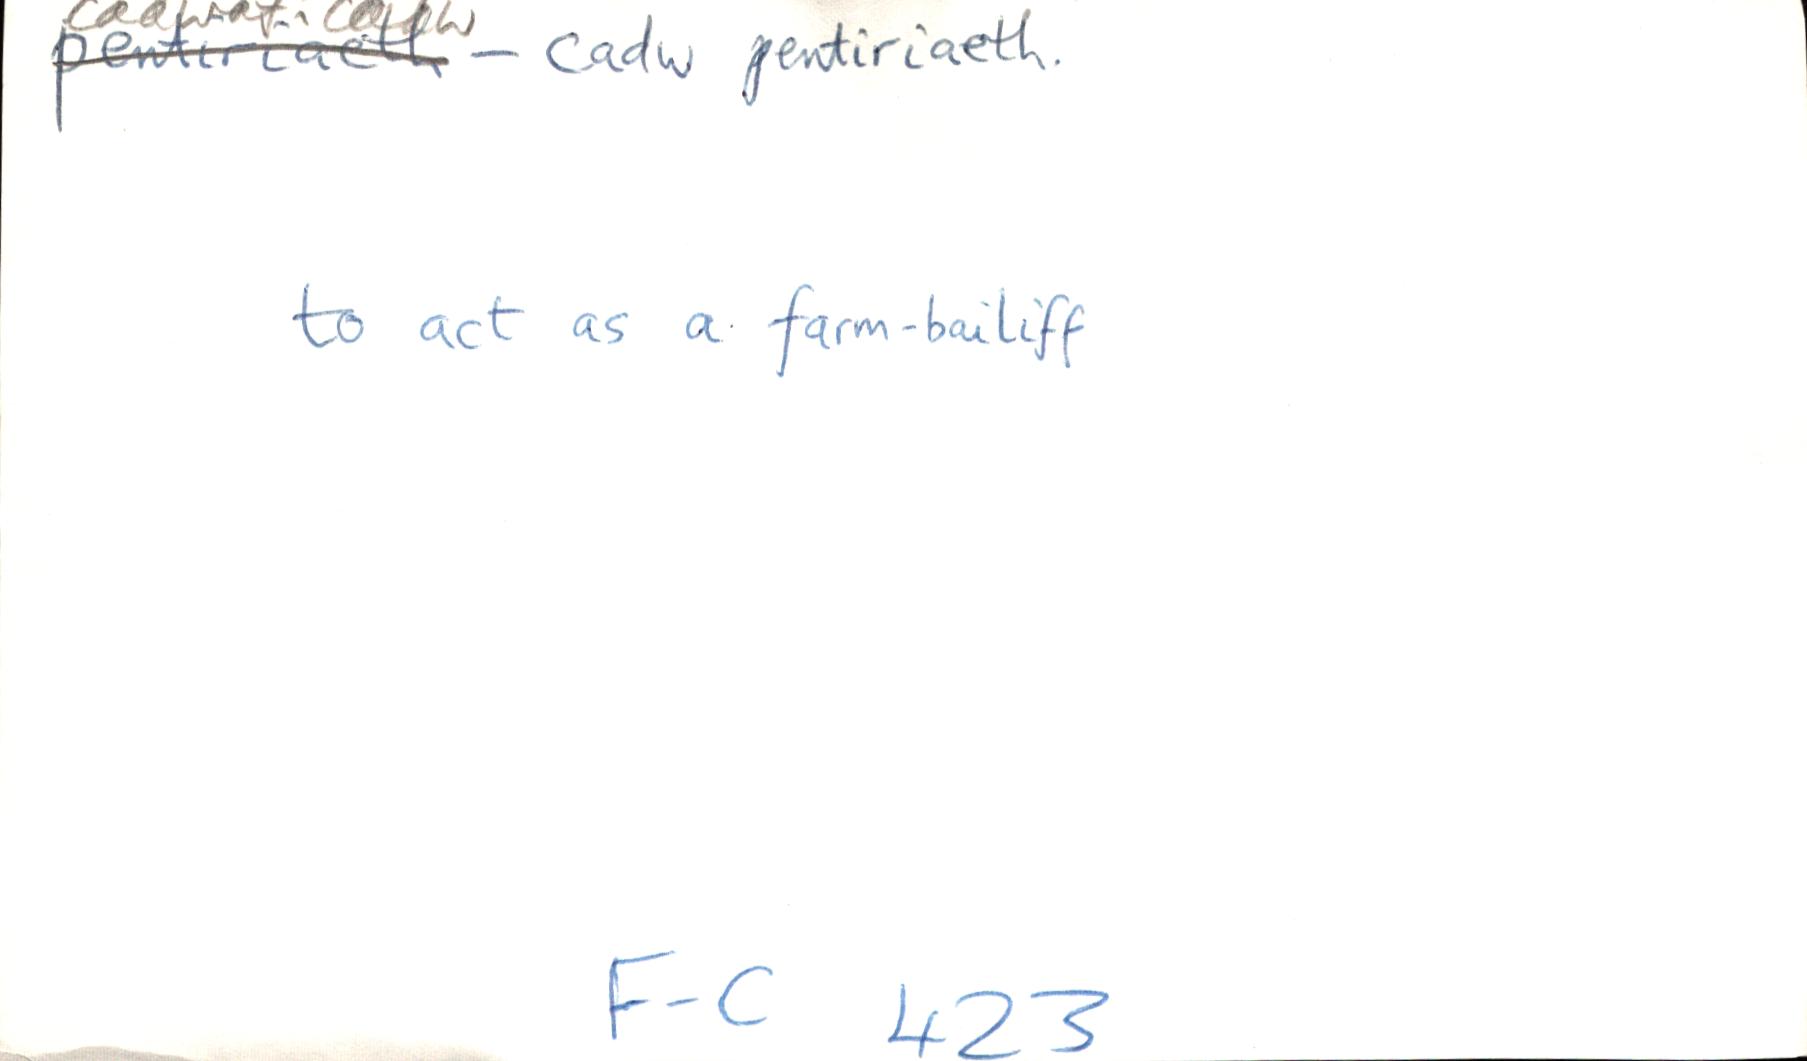 cadwaf: cadw
pentiriaeth — cadw pentiriaeth.
to act as a farm-bailiff
F-C 423